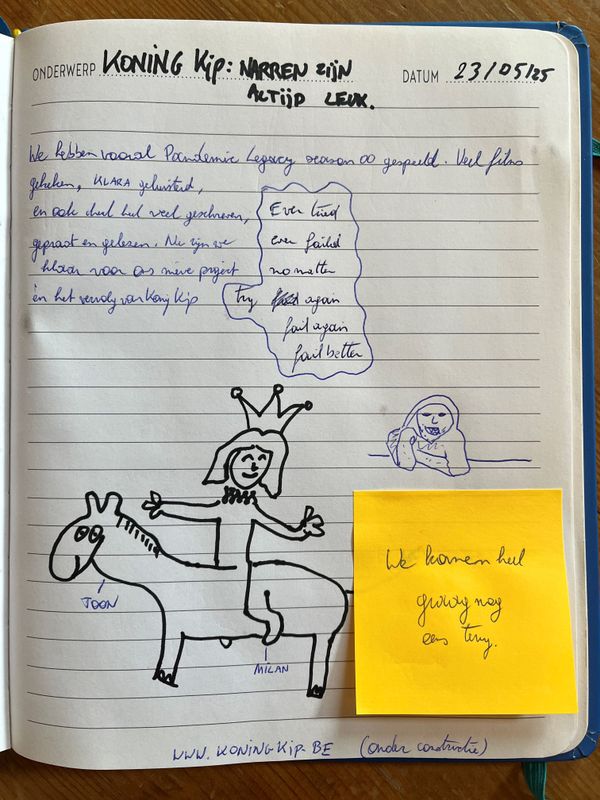 ONDERWERP KONING Kip: NARREN ZIJN
ALTIJD LEUK.
DATUM 23/05/25
We hebben vooral Pandemic Legacy season 00 gespeeld. Veel films
gekeken, KLARA geluisterd,
en ook heel veel geschreven,
gepraat en gelezen. Nu zijn we
klaar voor ons nieuwe project
èn het vervolg van Koning Kip
Ever tried
ever failed
no matter
try again
fail again
fail better
TOON
MILAN
We komen heel
graag nog
eens terug.
WWW.KONINGKIP.BE (onder constructie)